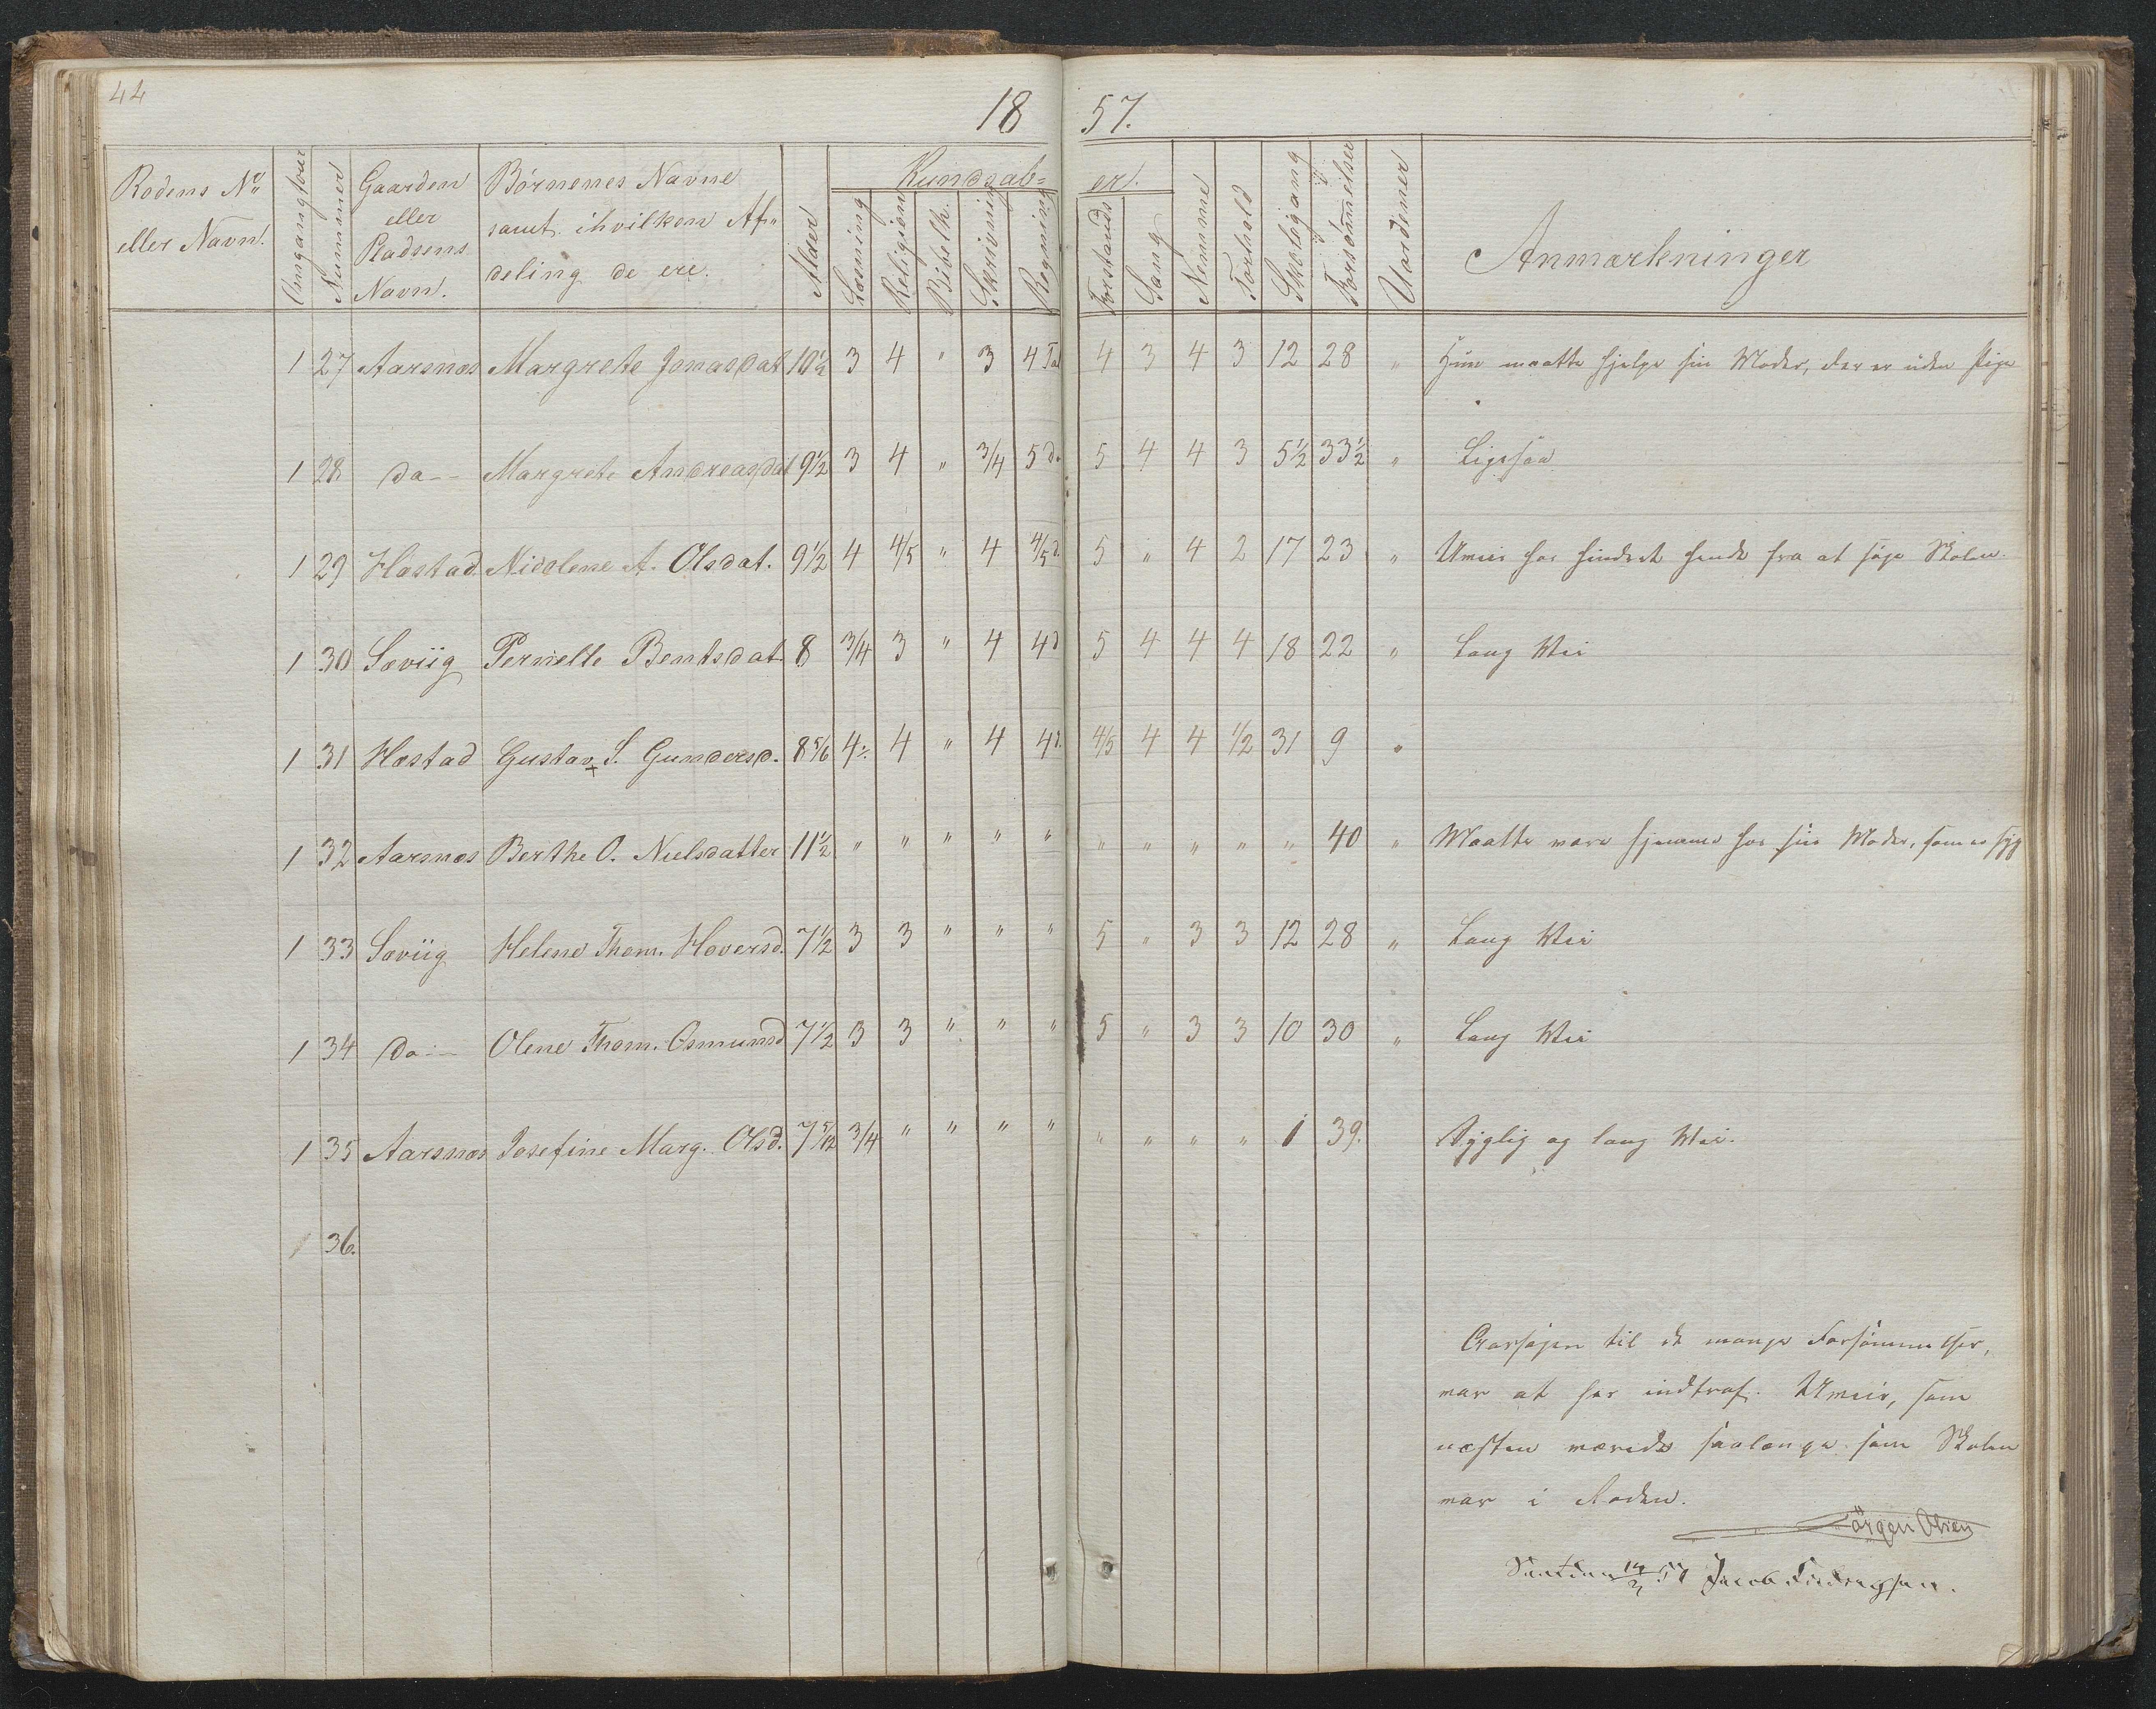 44
18 57.
Rodens No eller Navn. Omgangstour Nummer Gaarden eller Pladsens Navn. Børnenes Navne samt ihvilken Afdeling de ere. Alder Kundskaber. Læsning Religion Bibelh. Skrivning Regning Forstands Sang Nemme Forhold Skolegang Forsømmelser Uordener Anmærkninger
1 27 Aarsnæs Margrete Jonasdat 10½ 3 4 " 3 4 Tal 4 3 4 3 12 28 " Hun maatte hjelpe sin Moder, der er uden Pige
1 28 do-- Margrete Andreasdat 9½ 3 4 " 3/4 5 d. 5 4 4 3 5½ 33½ " Ligesaa
1 29 Hæstad. Nicolene A. Olsdat. 9½ 4 4/5 " 4 4/5 d. 5 " 4 2 17 23 " Uveir har hindret hende fra at søge Skolen.
1 30 Sæviig Pernelle Bentsdat 8 3/4 3 " 4 4 d 5 4 4 4 18 22 " Lang Vei
1 31 Hæstad Gustav S. Gundersd. 8 5/6 4 ÷ 4 " 4 4 d. 4/5 4 4 1/2 31 9 "
1 32 Aarsnæs Berthe O. Nielsdatter 11½ " " " " " " " " " " 40 " Maatte være hjemme hos sin Moder, som er syg
1 33 Sæviig Helene Thom. Hoversd. 7½ 3 3 " " " 5 " 3 3 12 28 " Lang Vei
1 34 do-- Olene Thom. Osmunsd 7½ 3 3 " " " 5 " 3 3 10 30 " Lang Vei
1 35 Aarsnæs Josefine Marg. Olsd. 7 5/12 3/4 " " " " " " " " 1 39. Sygelig og lang Vei.
1 36.
Aarsagen til de mange Forsømmelser,
var at her indtraf Uveir, som
næsten varede saalænge som Skolen
var i Roden.
Jörgen Olsen
57 Jacob